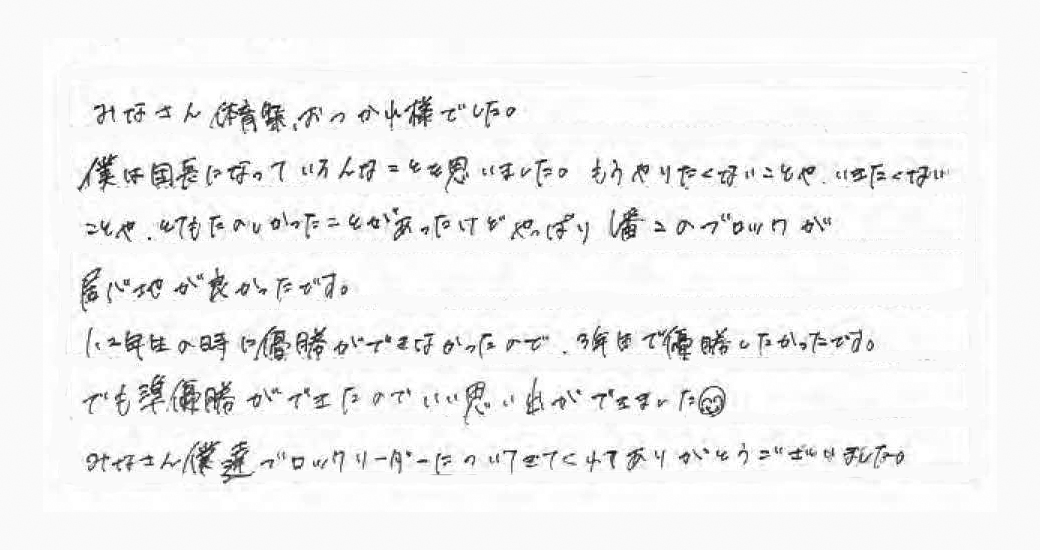 みなさん体育祭、おつかれ様でした。
僕は団長になっていろんなことを思いました。もうやりたくないことや、いきたくない
ことや、とてもたのしかったことがあったけどやっぱり1番このブロックが
居心地が良かったです。
1、2年生の時に優勝ができなかったので、3年生で優勝したかったです。
でも準優勝ができたのでいい思い出ができました😊
みなさん僕達ブロックリーダーについてきてくれてありがとうございました。